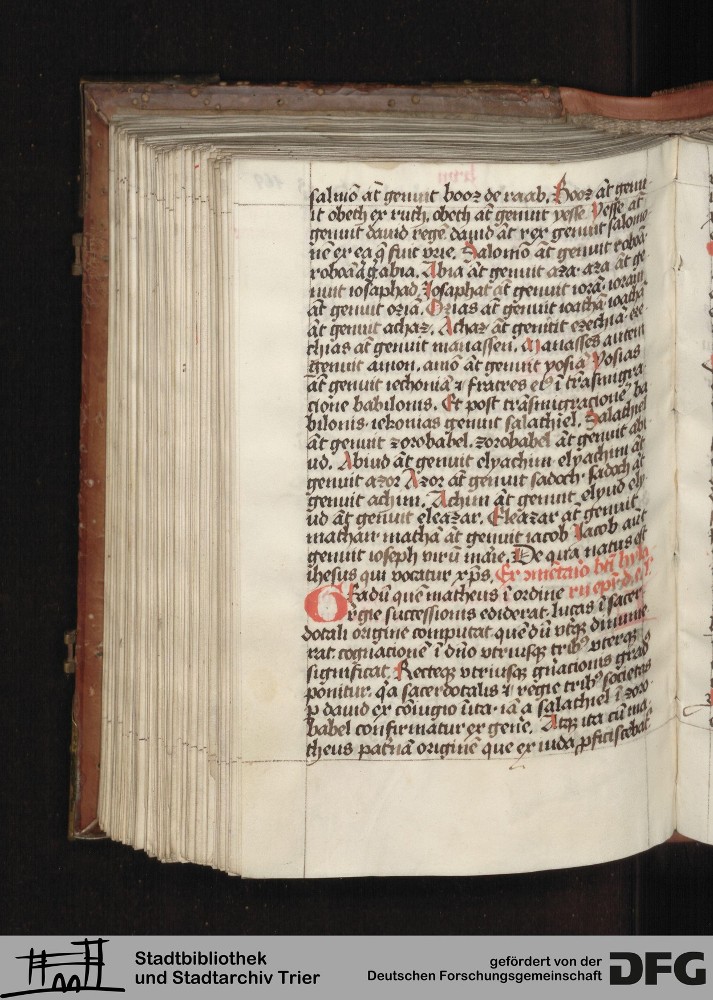 salmō aūt genuit booz de raab. Booz aūt genu
it obeth ex ruth. obeth aūt genuit yesse. Yesse aūt
genuit dauid regē. dauid aūt rex genuit salomo
nē ex ea q̄ fuit vrie. Salomō aūt genuit roboā
roboā aūt abia. Abia aūt genuit aza. aza aūt ge
nuit iosaphad. Iosaphat aūt genuit iorā. ioram
aūt genuit oziā. Ozias aūt genuit ioathā ioathā
aūt genuit achaz. Achaz aūt genuit ezechiā. eze
chias aūt genuit manassen. Manasses autem
genuit amon. amō aūt genuit yosiā Yosias
aūt genuit iechoniā ⁊ fratres eiꝰ ī trāsmigra
cione babilonis. Et post trāsmigracionē ba
bilonis. iekonias genuit salathiel. Salathiel
aūt genuit zorobabel. zorobabel aūt genuit abi
ud. Abiud aūt genuit elyachim. elyachim aūt
genuit azor Azor aūt genuit sadoch. sadoch aūt
genuit achim. Achim aūt genuit elyud ely
ud aūt genuit eleazar. Eleazar aūt genuit
mathan. mathā aūt genuit iacob Iacob aūt
genuit ioseph virū marie. De qua natus est
ihesus qui vocatur xp̄s. Ex ꝯmētaō btī hyla
Gradū quē matheus ī ordine rii ep̄i
regie successionis ediderat. lucas ī sacer
dotali origine computat. quē dū vtqꝫ dinume
rat. cognacionē ī dn̄o vtriusqꝫ tribꝰ vterqꝫ
significat. Recteqꝫ vtriusqꝫ gn̄acionis grad
ponitur. q̄a sacerdotalis ⁊ regie tribꝰ societas
p dauid ex cōiugio īita. iā a salathiel ī zoro
babel confirmatur ex gen̄e. Atqꝫ ita cū ma
theus pat̄nā originē que ex iuda ꝓficiscebat
Stadtbibliothek
und Stadtarchiv Trier
gefördert von der
Deutschen Forschungsgemeinschaft
DFG